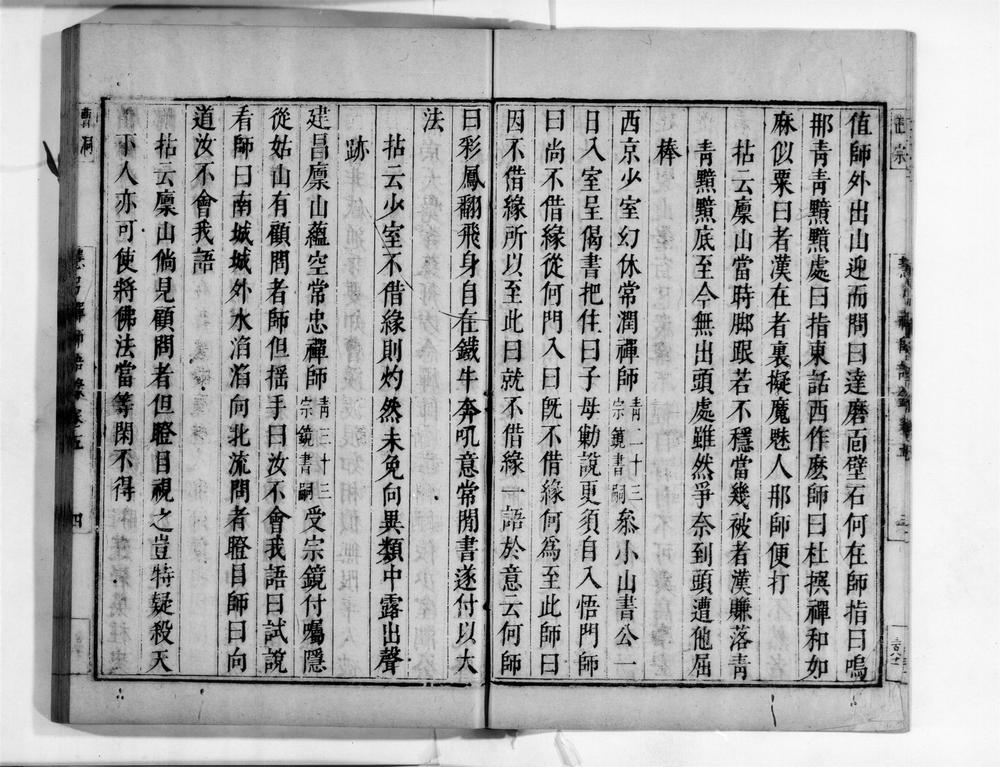 值師外出山迎而問曰達磨面壁石何在師指曰嗚
那青青黯黯處曰指東話西作麽師曰杜撰禪和如
麻似粟曰者漢在者裏擬魔魅人那師便打
拈云廩山當時脚跟若不穩當幾被者漢賺落青
青黯黯底至今無出頭處雖然爭奈到頭遭他屈
棒
西京少室幻休常潤禪師青二十三宗鏡書嗣叅小山書公一
日入室呈偈書把住曰子毋勦說更須自入悟門師
曰尚不借緣從何門入曰旣不借緣何爲至此師曰
因不借緣所以至此曰就不借緣一語於意云何師
曰彩鳳翻飛身自在鐵牛奔吼意常閒書遂付以大
法
拈云少室不借緣則灼然未免向異類中露出聲
跡
建昌廩山蘊空常忠禪師青三十三宗鏡書嗣受宗鏡付囑隱
從姑山有顧問者師但揺手曰汝不會我語曰試說
看師曰南城城外水滔滔向北流問者瞪目師曰向
道汝不會我語
拈云廩山倘見顧問者但瞪目視之豈特疑殺天
下人亦可使將佛法當等閑不得
曹洞
語錄卷五
四